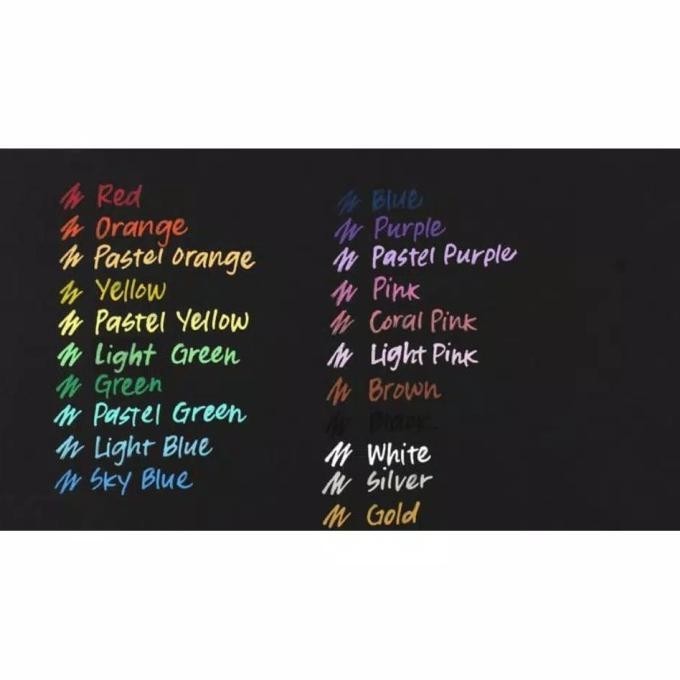 Red
Orange
Pastel Orange
Yellow
Pastel Yellow
Light Green
Green
Pastel Green
Light Blue
Sky Blue
Blue
Purple
Pastel Purple
Pink
Coral Pink
Light Pink
Brown
Black
White
Silver
Gold